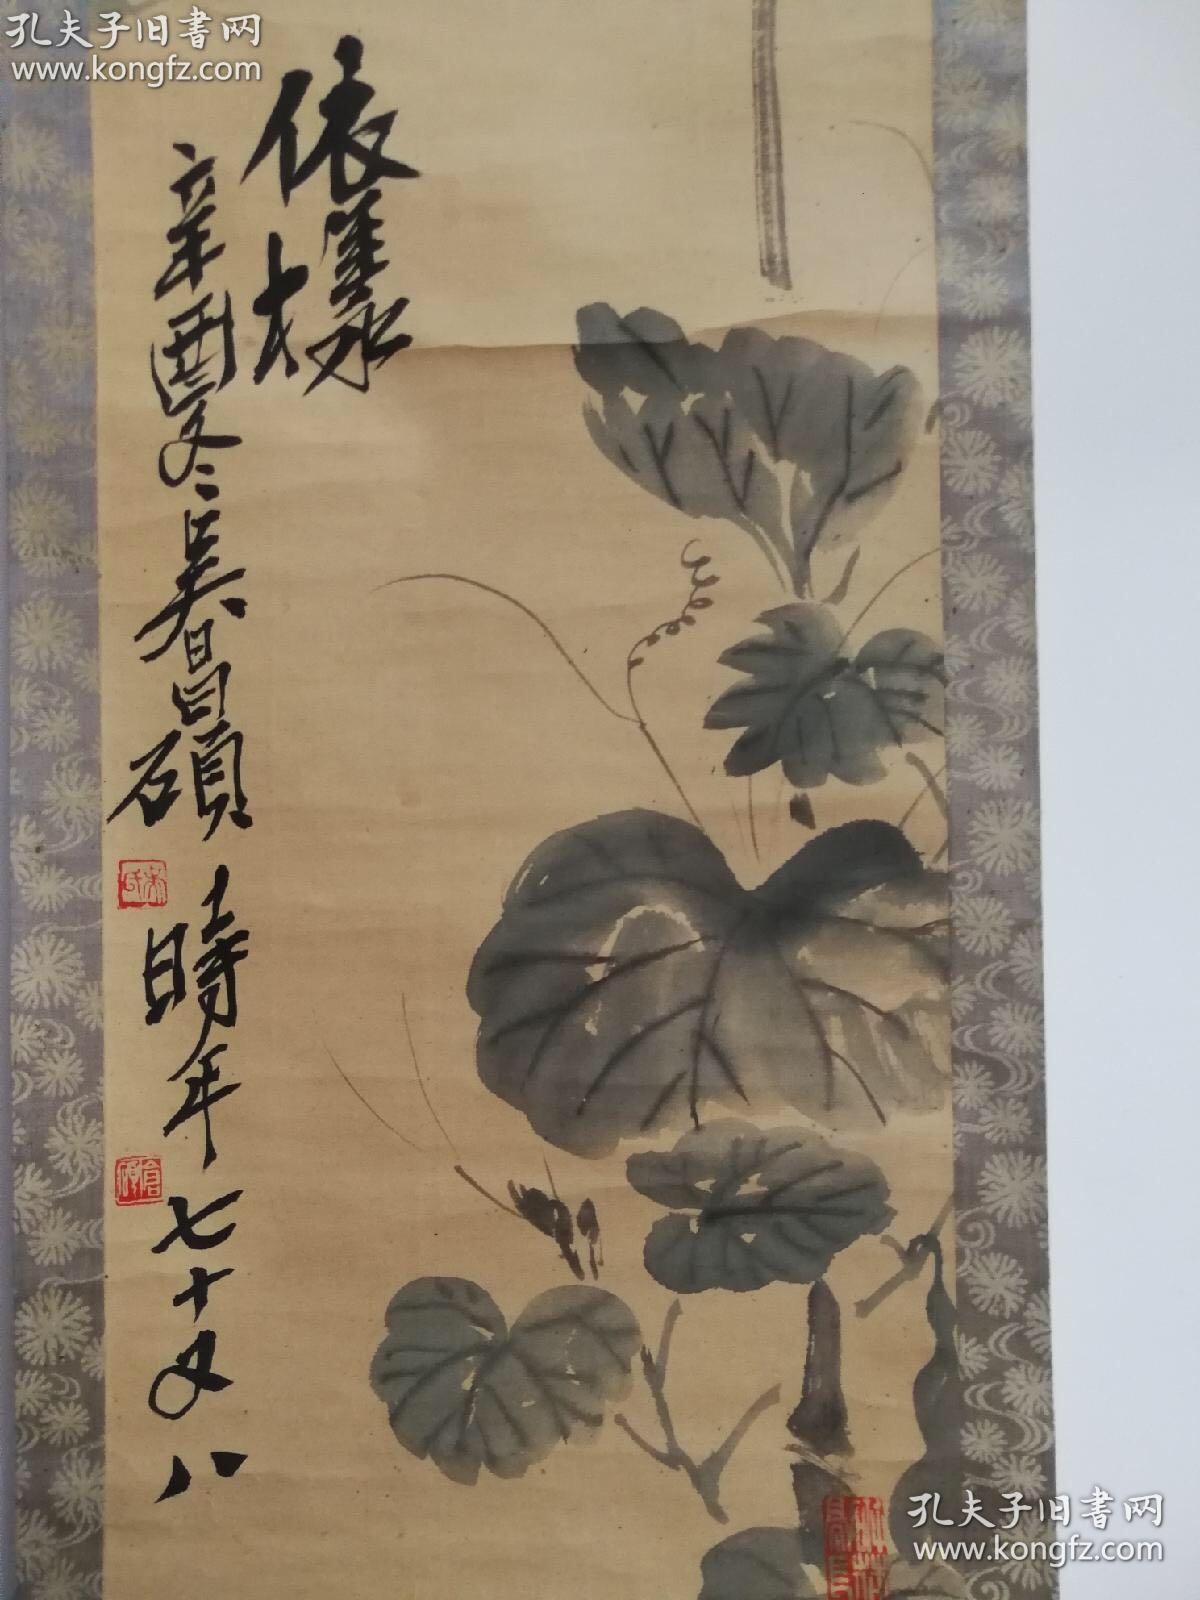 孔夫子旧書网
www.kongfz.com
依樣
辛酉冬吴昌碩
時年七十又八
孔夫子旧書网
www.kongfz.com